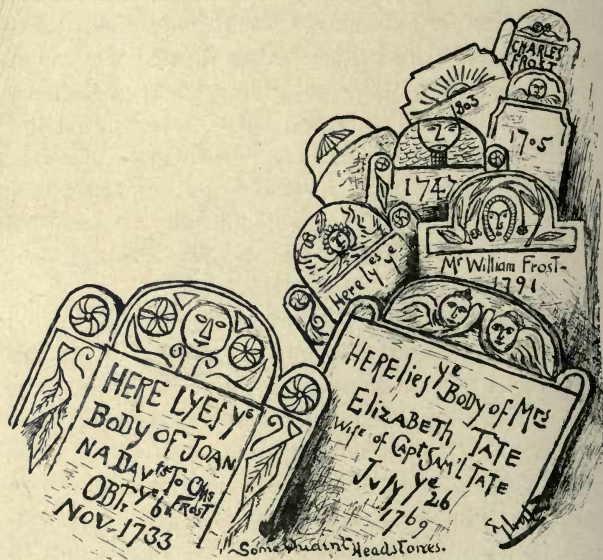 CHARLES
FROST
1803
1705
1747
Here lyes ye
Mr William Frost-
1791
HERE LYES ye
BODY OF JOAN
NA DAVtr To Chs
Frost
OBT. ye 6
NOV. 1733
HERE lies ye Body of Mrs
Elizabeth TATE
Wife of Capt Sam'l TATE
July ye 26
1769
Some Quaint Headstones.